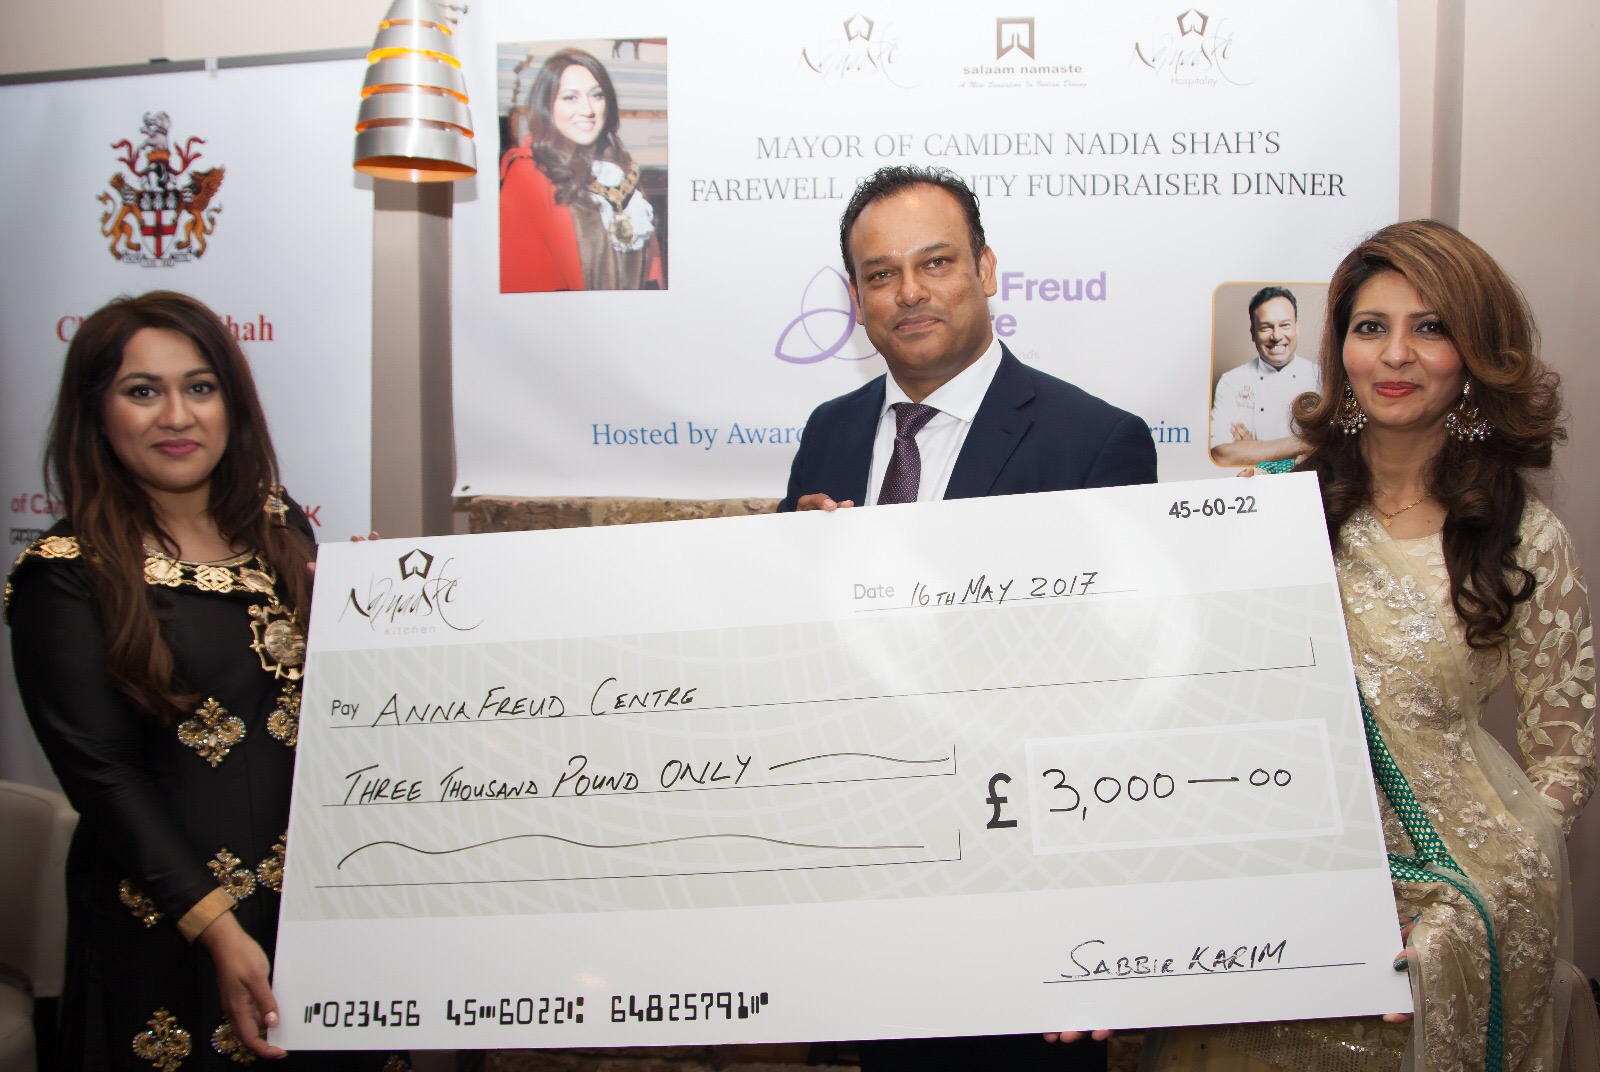 Namaaste
salaam namaste
A New Sensation In Indian Dining
Namaaste
Hospitality
MAYOR OF CAMDEN NADIA SHAH'S
FAREWELL ITY FUNDRAISER DINNER
Freud
re
nds
Hosted by Award rim
Shah
of Cam
K
45-60-22
Namaaste
kitchen
Date 16TH MAY 2017
Pay ANNA FREUD CENTRE
THREE THOUSAND POUND ONLY
£ 3,000—00
SABBIR KARIM
023456 45 6022 64825791